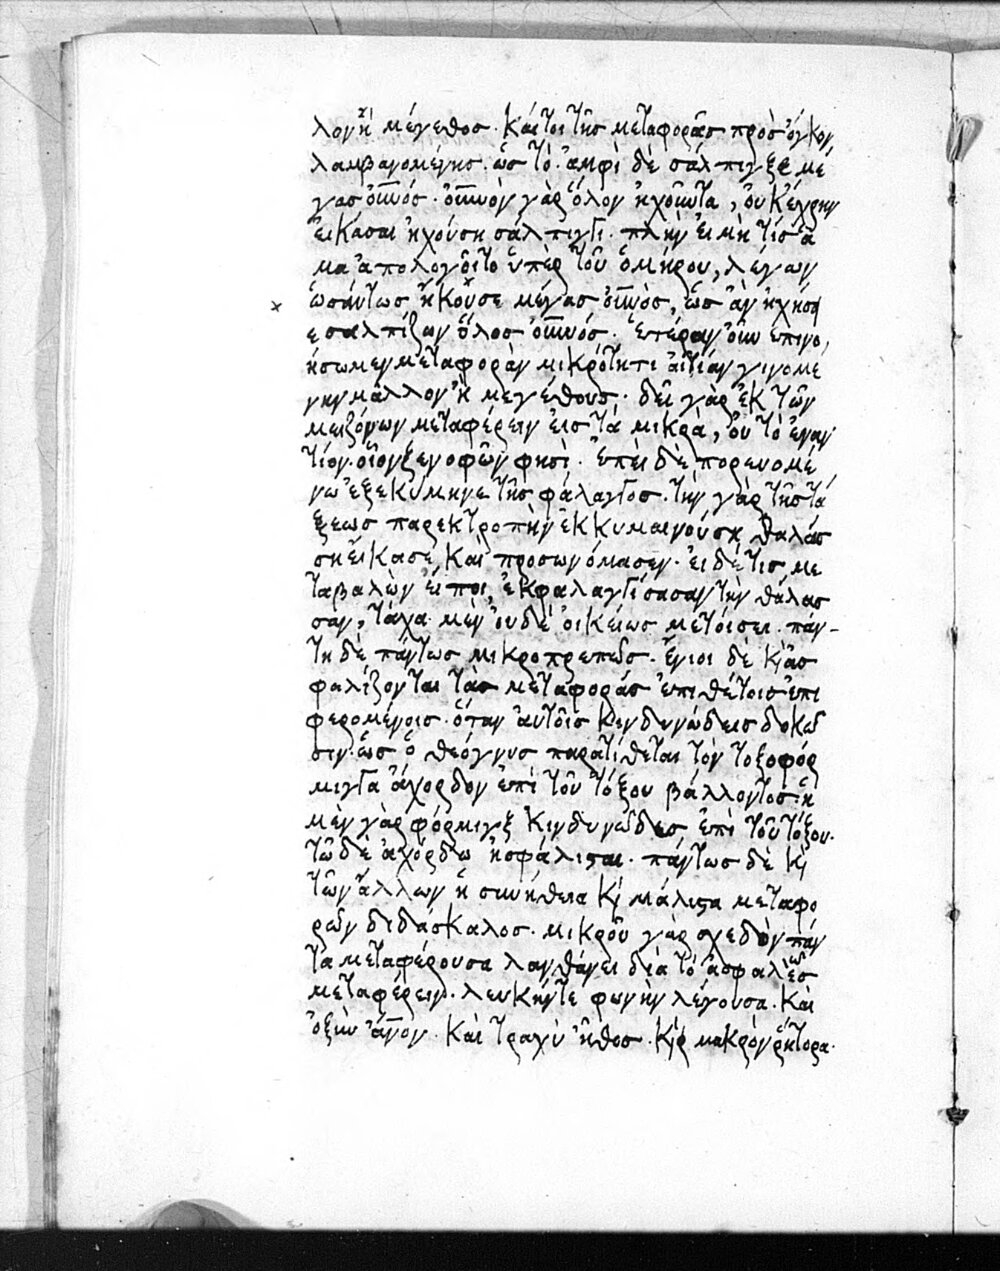 λον ἢ μέγεθος. καίτοι τῆς μεταφορᾶς πρὸς ὄγκον
λαμβανομένης. ὡς τὸ. ἀμφὶ δὲ σάλπιγξε μέ
γας οὐνός. οὐνὸν γὰρ ὅλον ἠχοῦντα, οὐκ ἐχρῆν
εἰκάσαι ἠχούσῃ σάλπιγγι. πλὴν εἰ μή τις ἄ
μα ἀπολογοῖτο ὑπὲρ τοῦ ὁμήρου, λέγων
ὡσαύτως ἤκουσε μέγας οὐνὸς, ὡς ἂν ἠχήσῃ
ε σαλπίζων ὅλος οὐνός. ἑτέραν οὖν ἐπινο,
ήσωμεν μεταφορὰν μικρότητι αἰτίαν γινομέ
νην μᾶλλον ἢ μεγέθους. δεῖ γὰρ ἐκ τῶν
μειζόνων μεταφέρειν εἰς τὰ μικρὰ, οὐ τὸ ἐναν
τίον. οἷον ξενοφῶν φησὶ. ἐπεὶ δὲ πορευομέ
νω ἐξεκύμηνε τῆς φάλαγγος. τὴν γὰρ τῆς τά
ξεως παρεκτροπὴν ἐκκυμαινούσῃ θαλάσ
σῃ εἴκασε, καὶ προσωνόμασεν. εἰ δέ τις με
ταβαλὼν εἴποι, ἐκφαλαγγίσασαν τὴν θάλασ
σαν, τάχα μὲν οὐδὲ οἰκείως μετοίσει. πάν-
τη δὲ πάντως μικροπρεπῶς. ἔνιοι δὲ κ̀ ἀσ
φαλίζονται τὰς μεταφορὰς ἐπιθέτοις ἐπι
φερομένοις. ὅταν αὐτοῖς κινδυνώδεις δοκῶ
σιν. ὡς ὁ θεόγνυς παρατίθεται τὸν τοξοφόρ
μιγγα ἄχορδον ἐπὶ τοῦ τόξου βάλλοντος. ἡ
μὲν γὰρ φόρμιγξ κινδυνῶδες ἐπὶ τοῦ τόξου.
τῶ δὲ ἀχόρδω ἠσφάλισται. πάντως δὲ κ̀
τῶν ἄλλων ἡ συνήθεια κ̀ μάλιστα μεταφο
ρῶν διδάσκαλος. μικροῦ γὰρ σχεδὸν πάν
τα μεταφέρουσα λανθάνει διὰ τὸ ἀσφαλῶς
μεταφέρειν. λευκήν τε φωνὴν λέγουσα. καὶ
ὀξὺν ἄνον. καὶ τραχὺ ἦθος. κ̀ μακρὸν ῥήτορα.